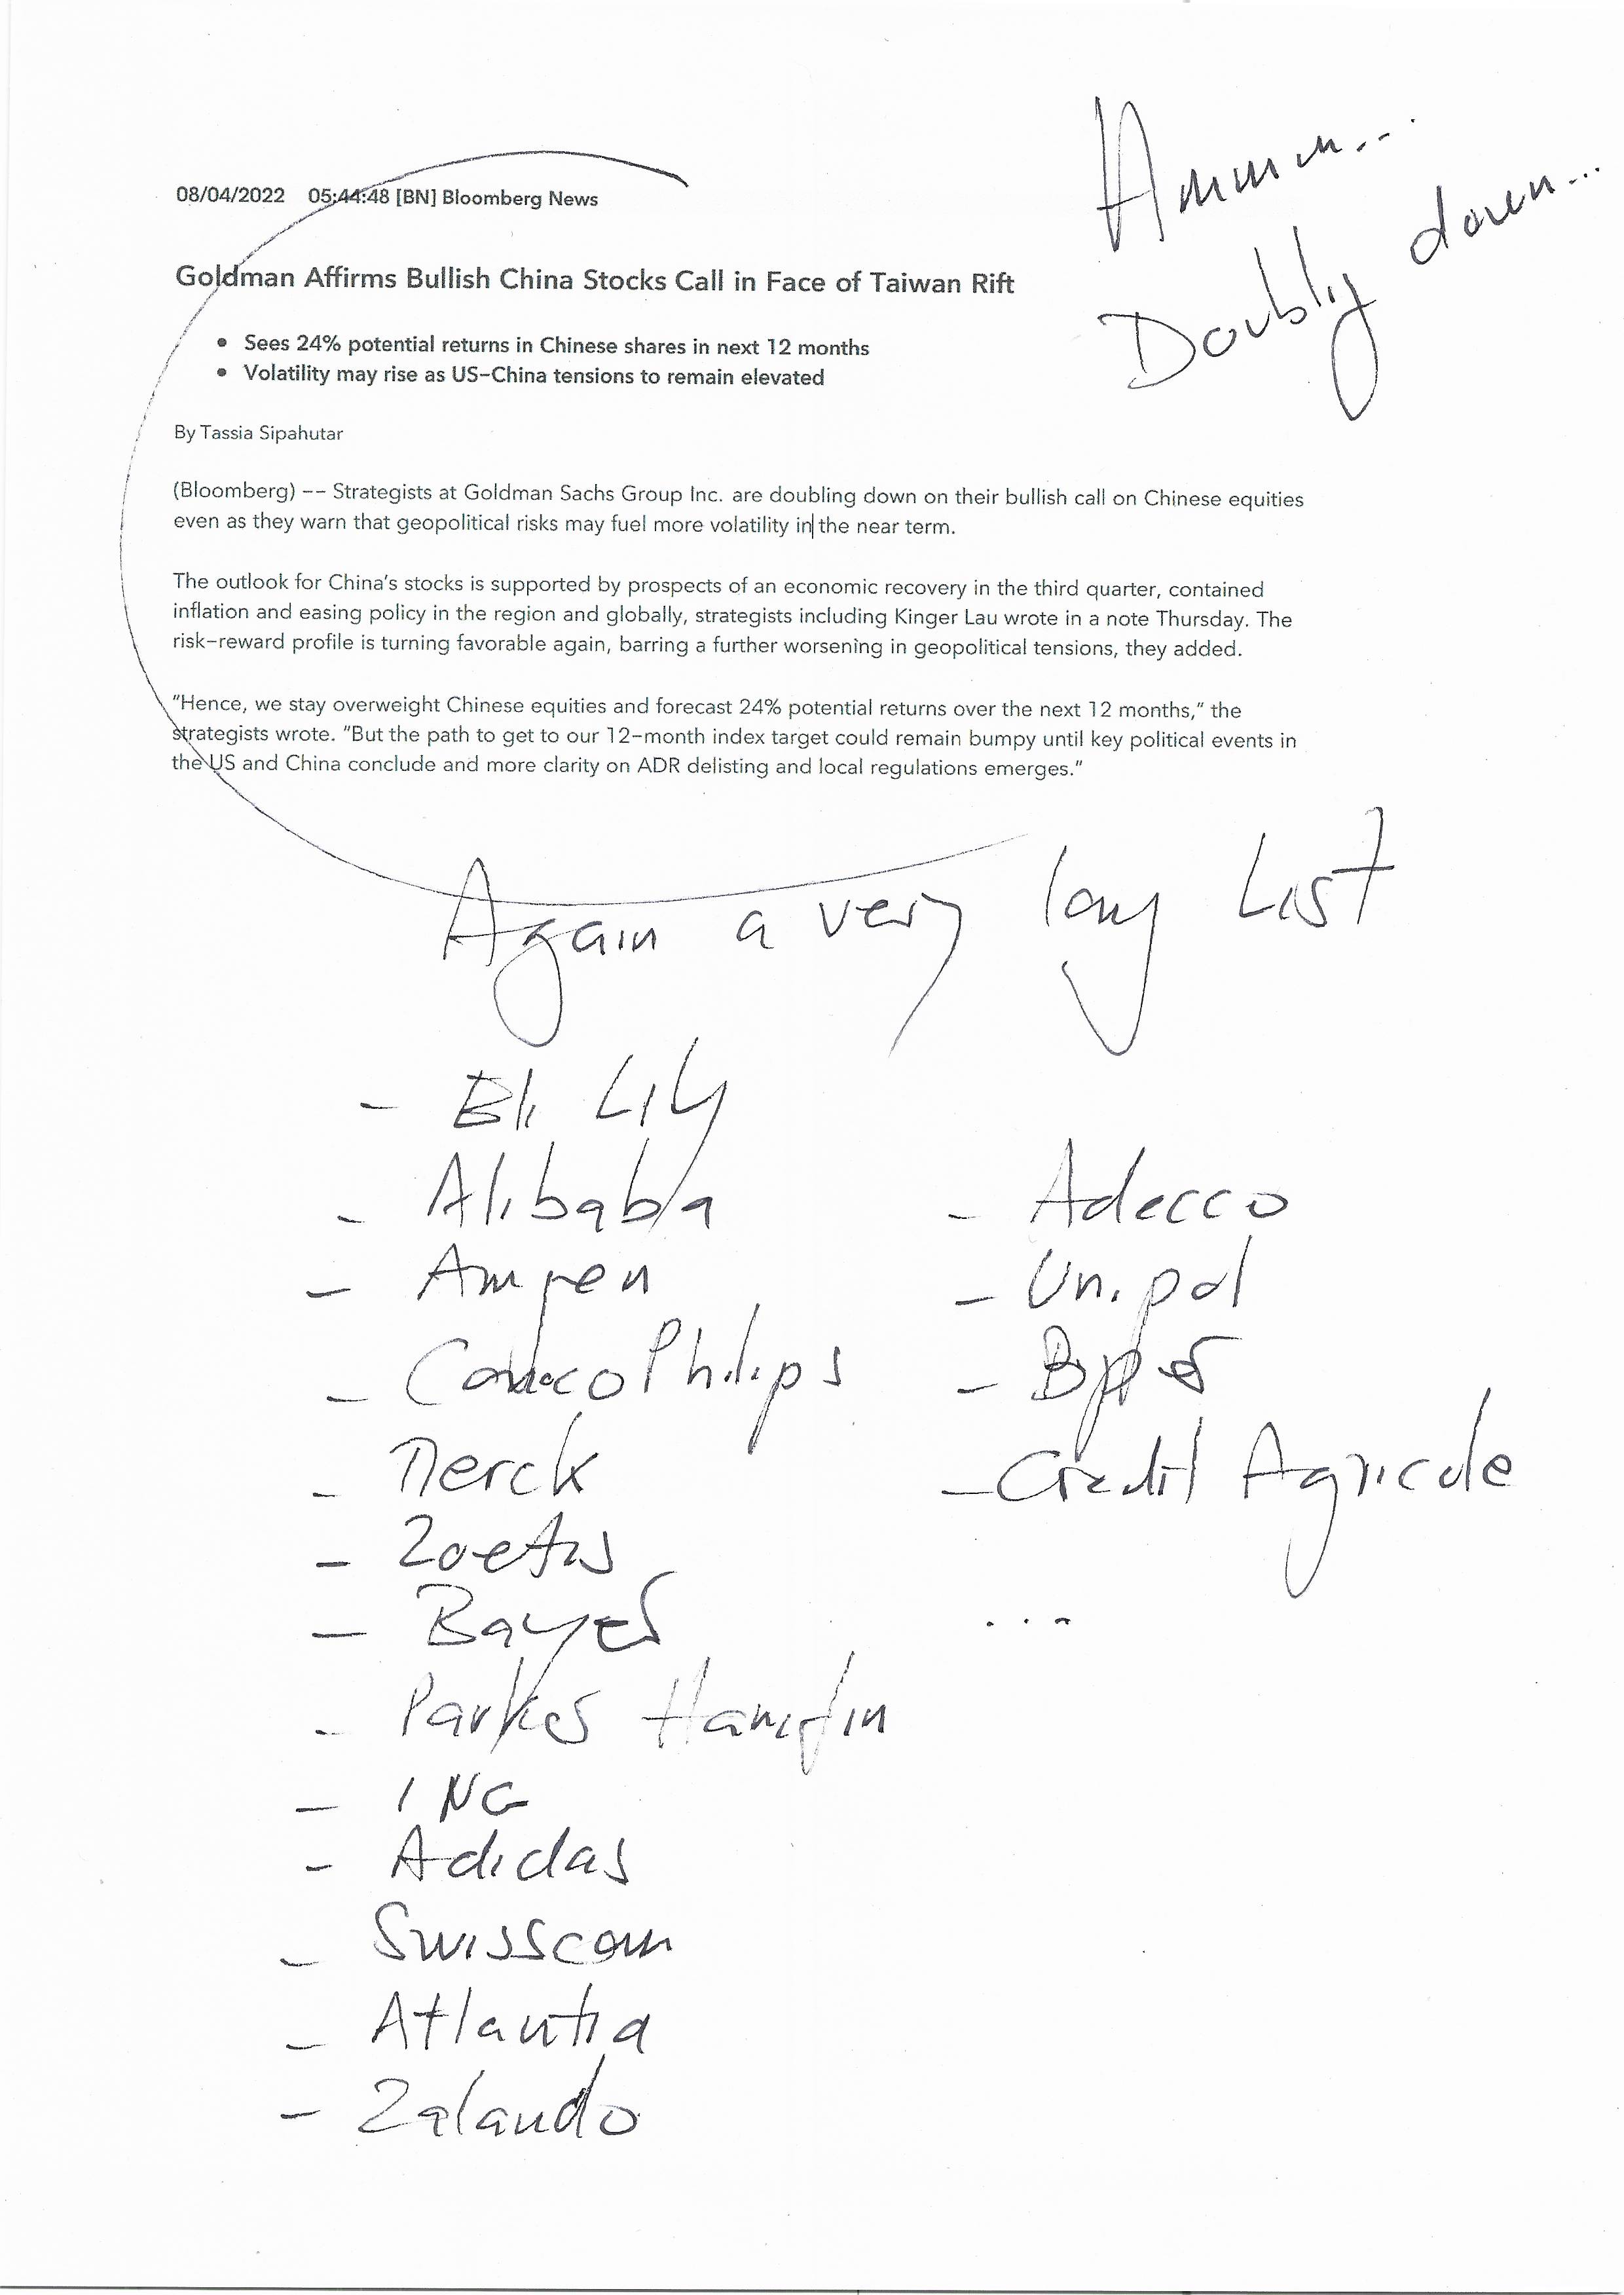 Hmmm...
Doubly down...
08/04/2022 05:44:48 [BN] Bloomberg News
Goldman Affirms Bullish China Stocks Call in Face of Taiwan Rift
• Sees 24% potential returns in Chinese shares in next 12 months
• Volatility may rise as US-China tensions to remain elevated
By Tassia Sipahutar
(Bloomberg) -- Strategists at Goldman Sachs Group Inc. are doubling down on their bullish call on Chinese equities
even as they warn that geopolitical risks may fuel more volatility in the near term.
The outlook for China's stocks is supported by prospects of an economic recovery in the third quarter, contained
inflation and easing policy in the region and globally, strategists including Kinger Lau wrote in a note Thursday. The
risk-reward profile is turning favorable again, barring a further worsening in geopolitical tensions, they added.
"Hence, we stay overweight Chinese equities and forecast 24% potential returns over the next 12 months," the
strategists wrote. "But the path to get to our 12-month index target could remain bumpy until key political events in
the US and China conclude and more clarity on ADR delisting and local regulations emerges."
Again a very long List
- Eli Lily
- Alibaba
- Amgen
- ConocoPhilips
- Merck
- Zoetis
- Bayer
- Parker Hanifin
- ING
- Adidas
- Swisscom
- Atlantia
- Zalando
- Adecco
- Unipol
- Credit Agricole
...